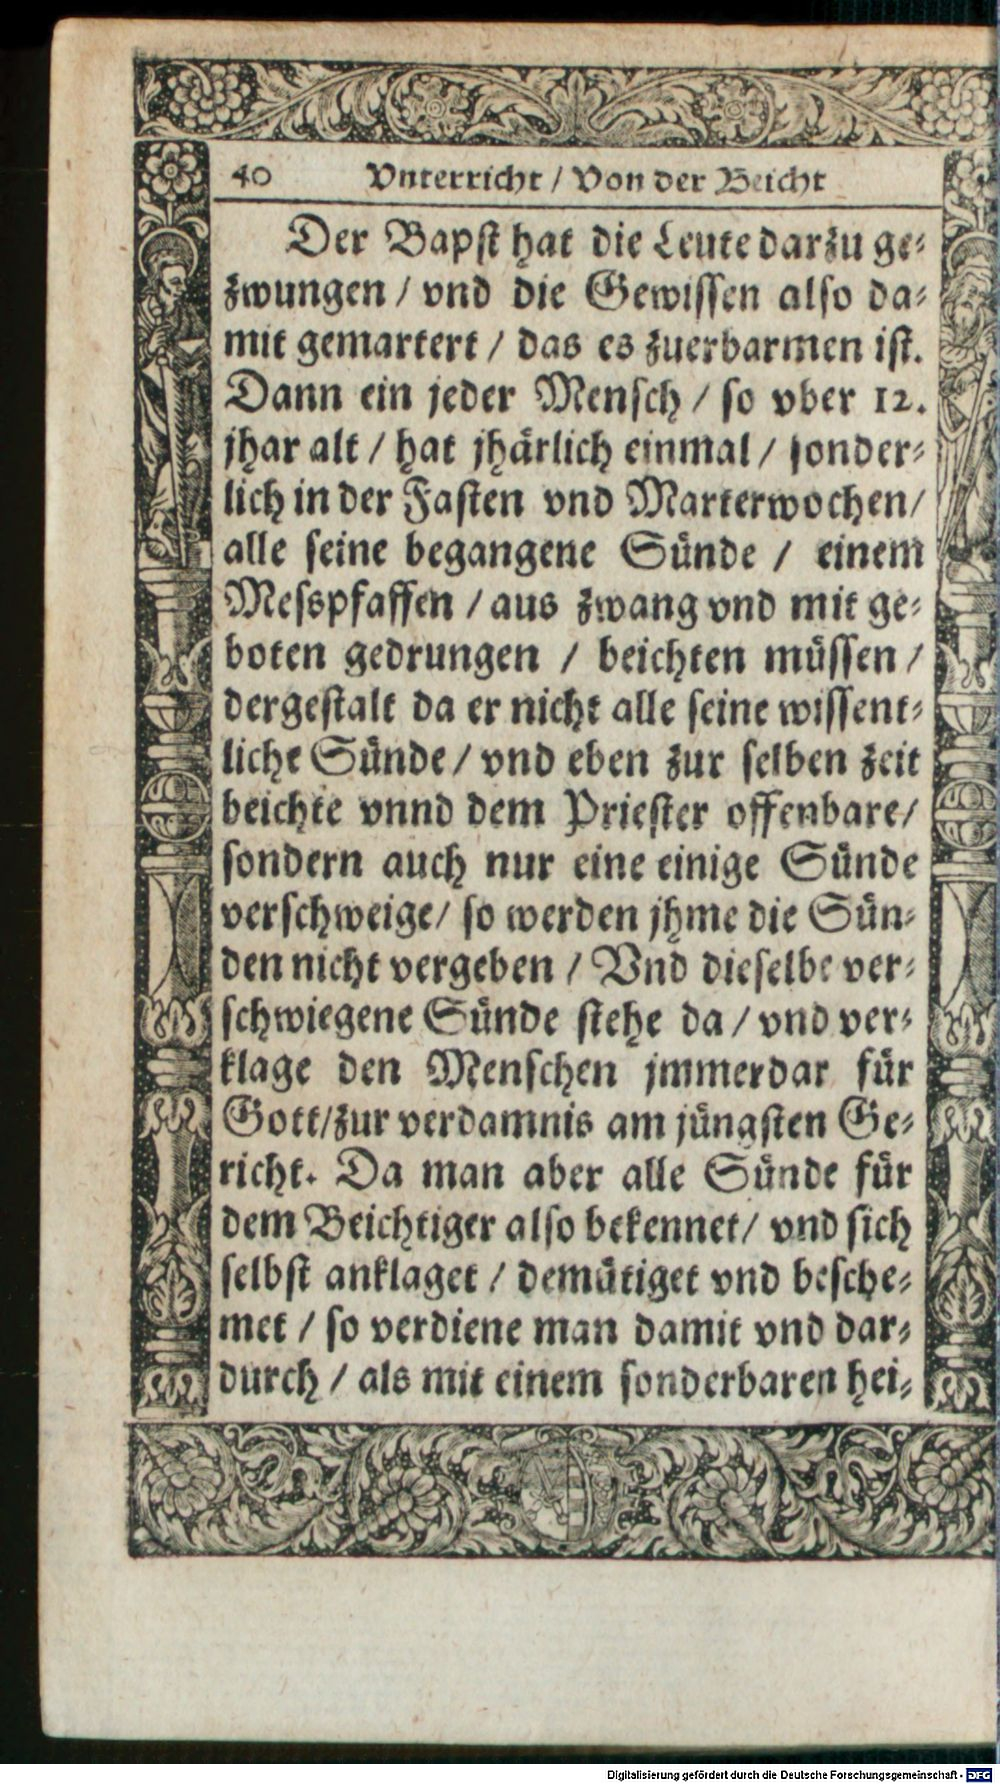 40 Vnterricht / Von der Beicht
Der Bapst hat die Leute darzu ge-
zwungen / vnd die Gewissen also da-
mit gemartert / das es zuerbarmen ist.
Dann ein jeder Mensch / so vber 12.
jhar alt / hat jhärlich einmal / sonder-
lich in der Fasten vnd Marterwochen /
alle seine begangene Sünde / einem
Messpfaffen / aus zwang vnd mit ge-
boten gedrungen / beichten müssen /
dergestalt da er nicht alle seine wissent-
liche Sünde / vnd eben zur selben zeit
beichte vnnd dem Priester offenbare /
sondern auch nur eine einige Sünde
verschweige / so werden jhme die Sün-
den nicht vergeben / Vnd dieselbe ver-
schwiegene Sünde stehe da / vnd ver-
klage den Menschen jmmerdar für
Gott / zur verdamnis am jüngsten Ge-
richt. Da man aber alle Sünde für
dem Beichtiger also bekennet / vnd sich
selbst anklaget / demütiget vnd besche-
met / so verdiene man damit vnd dar-
durch / als mit einem sonderbaren hei-
Digitalisierung gefördert durch die Deutsche Forschungsgemeinschaft - DFG